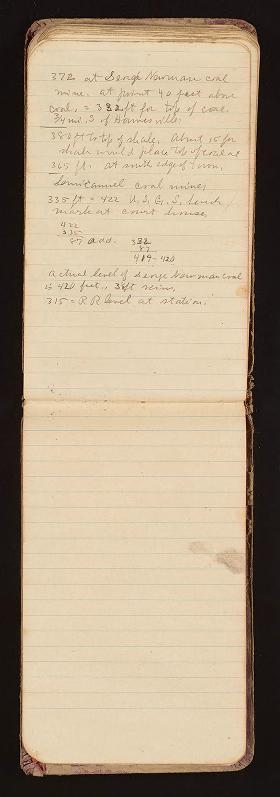 372 at Serge Newman coal
mine. at point 40 feet above
coal, = 332 ft for top of coal.
3/4 mi. S of Hawesville.
380 ft to top of shale. About 15 for
shale would place top of coal at
365 ft. at south edge of town,
coal mines
335 ft = 422 U.S.G.S. bench
mark at court house,
422
335
87 add. 332
87
419-420
Actual level of Serge Newman coal
is 420 feet.,
315 = RR level at station.